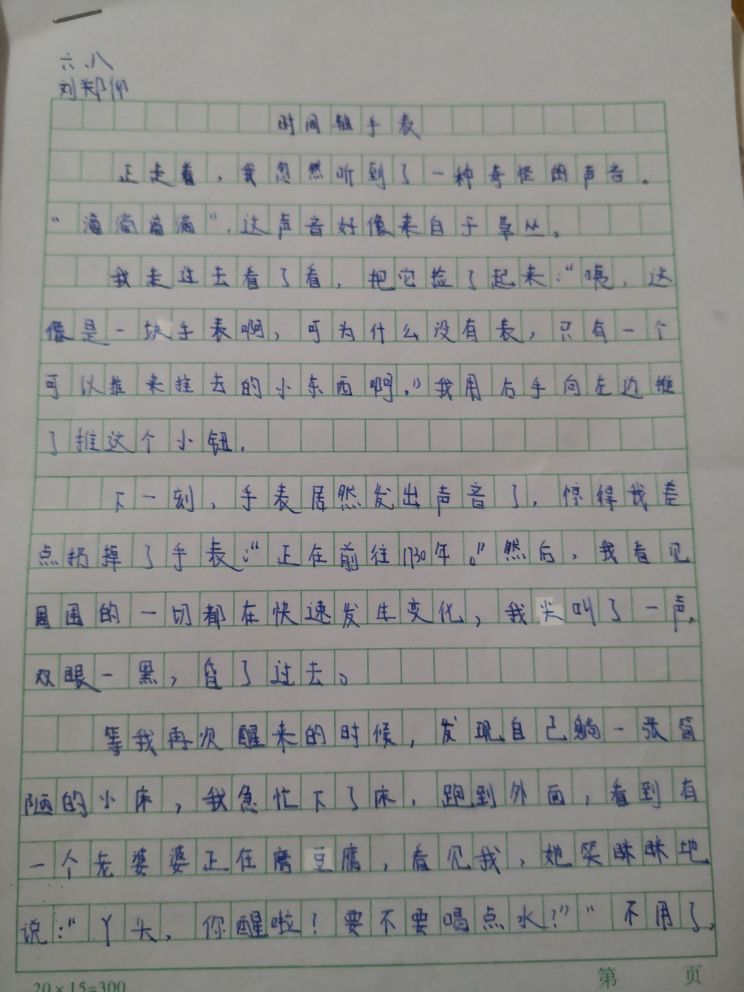 六.八
刘郑
时间 手表
正走着，我忽然听到了一种奇怪的声音。
“滴滴滴滴”，这声音好像来自于草丛。
我走过去看了看，把它捡了起来：“咦，这
像是一块手表啊，可为什么没有表，只有一个
可以推来推去的小东西啊。”我用右手向左边推
了推这个小钮。
下一刻，手表居然发出声音了，惊得我差
点扔掉了手表：“正在前往1730年。”然后，我看见
周围的一切都在快速发生变化，我尖叫了一声，
双眼一黑，昏了过去。
等我再次醒来的时候，发现自己躺一张简
陋的小床，我急忙下了床，跑到外面，看到有
一个老婆婆正在磨豆腐，看见我，她笑眯眯地
说：“丫头，你醒啦！要不要喝点水？”“不用了，
20×15=300
第 页